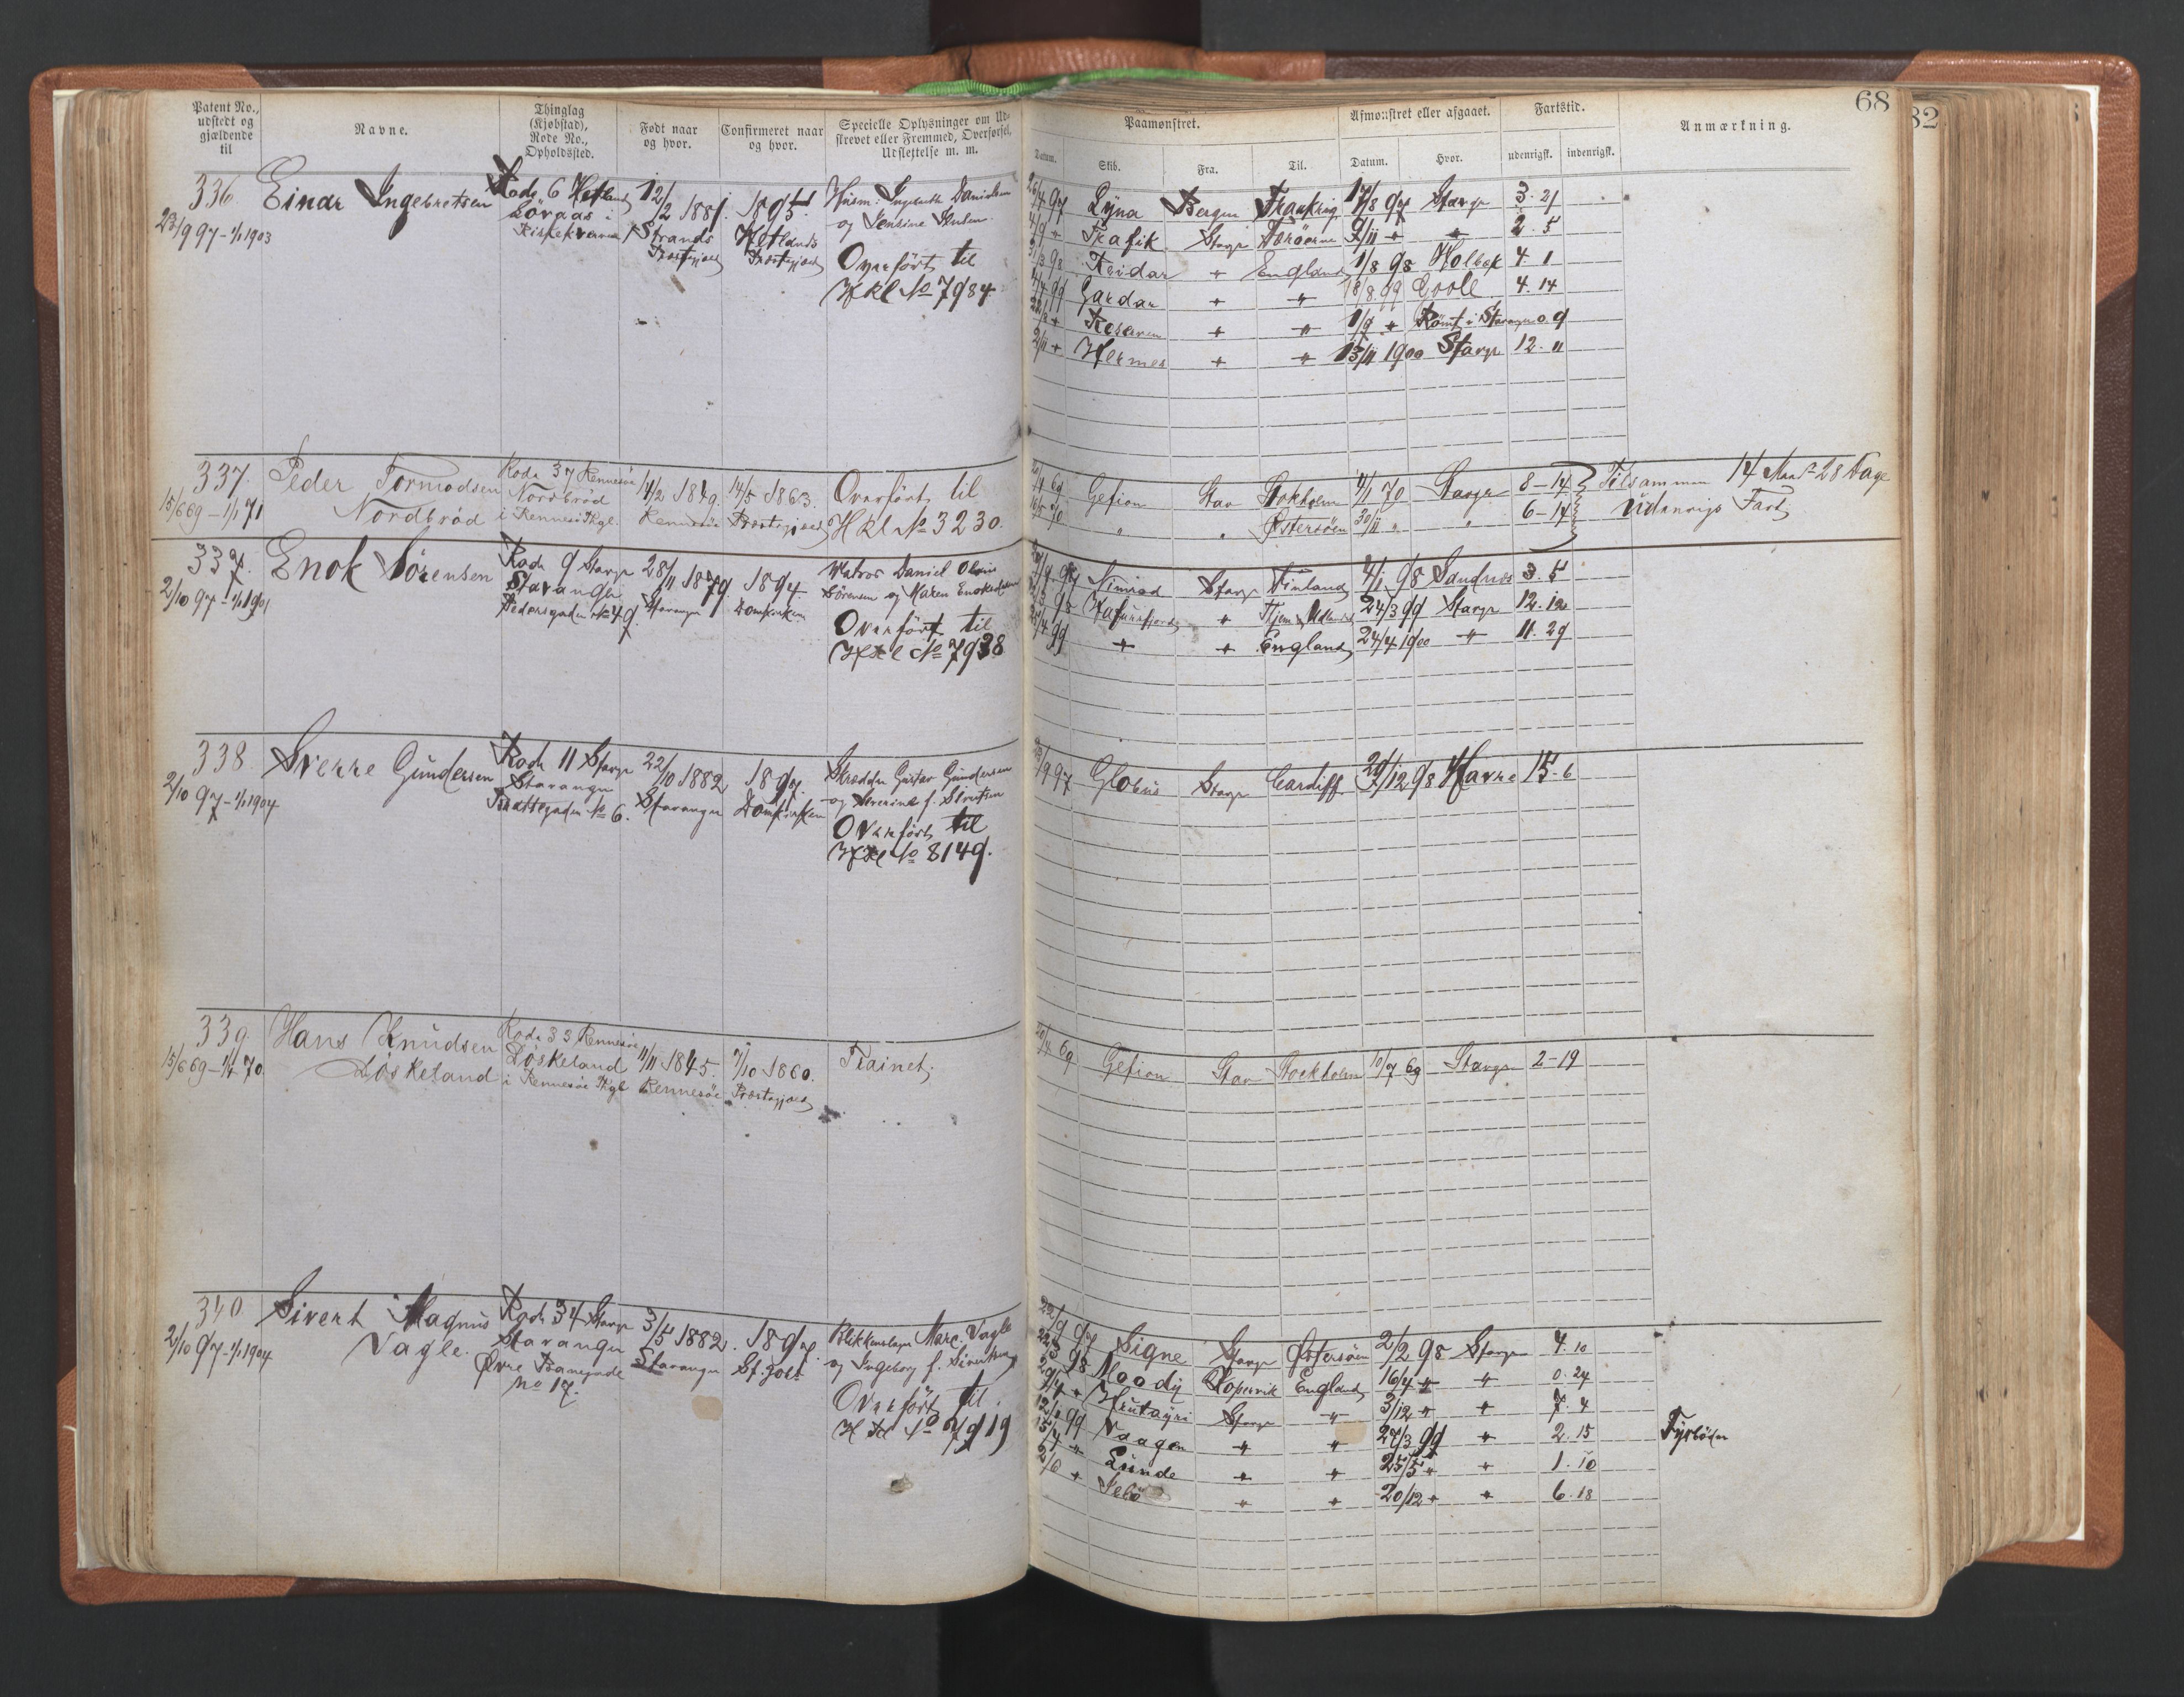 68
82
Patent No., udstedt og gjældende til
Navne.
Thinglag (Kjøbstad), Rode No., Opholdssted.
Født naar og hvor.
Confirmeret naar og hvor.
Specielle Oplysninger om Udskrevet eller Fremmed, Overførsel, Udslettelse m. m.
Paamønstret.
Datum.
Skib.
Fra.
Til.
Afmønstret eller afgaaet.
Datum.
Hvor.
Fartstid.
udenrigsk.
indenrigsk.
Anmærkning.
336
23/9 97 - 1/1 1903
Einar Ingebretsen
Rode 6 Hetland
12/2 1881.
Strands Præstegjæld
1895.
Hetlands Præstegjæld
og Jensine
Overført til
HKl No 7984
26/4 97 Lyna Bergen Frankrig 17/8 97 Stavgr 3. 21
Trafik Stavgr 9/11 " " 2. 5
31/3 98 Reidar " England 1/8 98 Holbæk 4. 1
Gardar " " 18/8 99 Goole 4. 14
" " 1/9 " Rømt i Stavanger 0. 9
2/11 " Hermes " " 13/11 1900 Stavgr 12. "
337.
15/6 69 - 1/1 71
Peder Tormodsen
Nordbrød
Rode 37 Rennesøe
Nordbrød
i Rennesø Thgl.
14/2 1849.
Rennesøe
14/5 1863.
Præstegjæld
Overført til
HKl No 3230.
Gefion Stav Stokholm 4/1 70 Stavgr 8 - 14
" " Østersøen 30/11 " " 6 - 14
Tilsammen 14 Mdr 28 Dage
Udenrigs Fart
337.
2/10 97 - 1/1 1901
Enok Sørensen
Rode 9 Stavgr
Stavanger
Pedersgaden No 49.
28/11 1879.
Stavanger
1894.
Domkirken
Matros Daniel
Sørensen og Karen
Overført til
HKl No 7938
Nimrod Stavgr Finland 4/1 98 Sandnes 3. 5
Hafursfjord " 24/3 99 Stavgr 12. 12
25/4 99 " " England 24/4 1900 " 11. 29
338
2/10 97 - 1/1 1904
Sverre Gundersen
Rode 11 Stavgr
Stavanger
No 6.
22/10 1882
Stavanger
1897.
Domkirken
Skrædder Gustav Gundersen
og Severine f. Sivertsen
Overført til
HKl No 8149.
97 Globus Stavgr Cardiff 29/12 98 Havre 15. 6
339.
15/6 69 - 1/4 70.
Hans Knudsen
Løskeland
Rode 33 Rennesøe
Løskeland
i Rennesøe Thgl
11/11 1845.
Rennesøe
7/10 1860.
Præstegjæld
Trainet.
20/4 69 Gefion Stav Stockholm 10/7 69 Stavgr 2 - 19
340
2/10 97 - 1/1 1904
Sivert Magnus
Vagle.
Rode 34 Stavgr
Stavanger
Øvre Banegade
No 17.
3/5 1882.
Stavanger
1897.
St. Joh.
Blikkenslager Marc. Vagle
og Ingeborg f. Sivertsen
Overført til
HKl No 7919
97 Signe Stavgr Østersøen 2/2 98 Stavgr 4. 10
22/3 98 Moody Kopervik England 16/4 " " 0. 24
29/4 " Stavgr " 3/12 " " 7. 4
12/1 99 Vaagen " " 27/3 99 " 2. 15
15/4 " Lunde " " 25/5 " " 1. 10
2/6 " " " 20/12 " " 6. 18
Fyrbøder